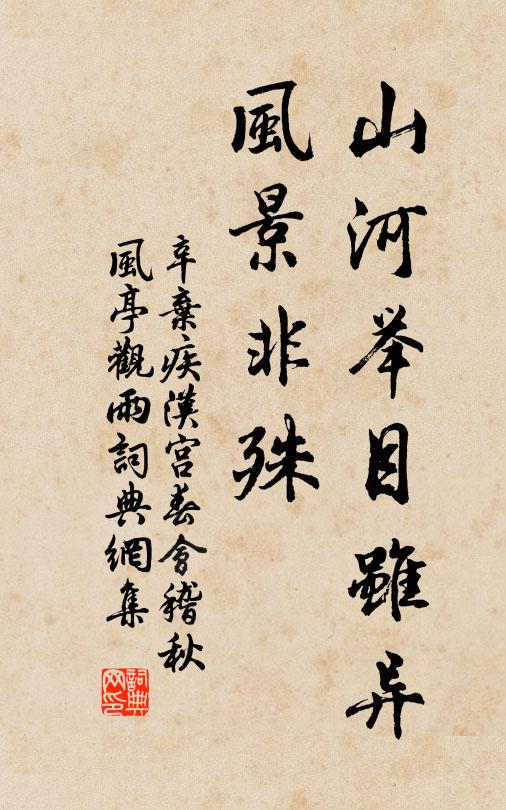 山河举目雖异
風景非殊
辛棄疾漢宮春會稽秋
風亭觀雨詞典網集
詞典网印